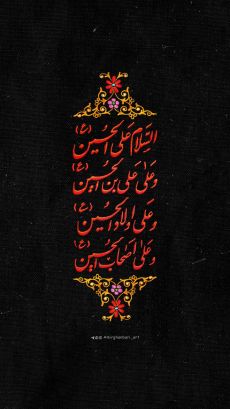 السلام علی الحسین (ع)
وعلی علی بن الحسین (ع)
وعلی اولاد الحسین (ع)
وعلی اصحاب الحسین (ع)